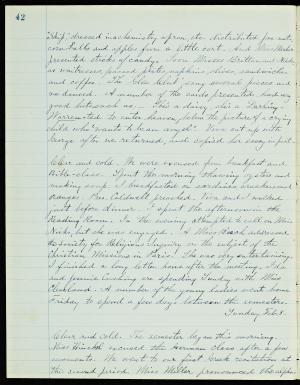 42
dressed in chemistry apron, etc. distributed for nuts,
corn-balls and apples from a little cart. And Miss
presented sticks of candy. Soon Misses Britton and
as waitresses passed plates, napkins, olives, sandwiches,
and coffee. The Glee Club sang several pieces and
we danced. A number of the cards presented had very
good hits such as, "This a daisy, she's a Darling"
Warren to enter heaven, below the picture of a crying
child who "wants to be an angel". Nina sat up with
George after we returned, and copied her essay in part.
Clear and cold. We were excused from breakfast and
Bible-class. Spent the morning thawing oysters and
making soup. I breakfasted on sardines crackers and
oranges. Mrs. Caldwell preached. Nina and I walked
just before dinner. I spent the afternoon in the
Reading Room. In the evening attempted to call on Miss
but she was engaged. A Miss addressed
the Society for Religious Inquiry on the subject of the
Christian Missions in Paris. She was very entertaining.
I finished a long letter home after the meeting. Ida
and Jennie are spending Sunday with Miss
Cleveland. A number of the young ladies went home
Friday to spend a few days between the semesters.
Sunday, Feb. 8.
Clear and cold. The semester began this morning.
Miss Hinckel excused the German class after a few
moments. We went to our first Greek recitation at
the second period. Miss pronounced the alpha-